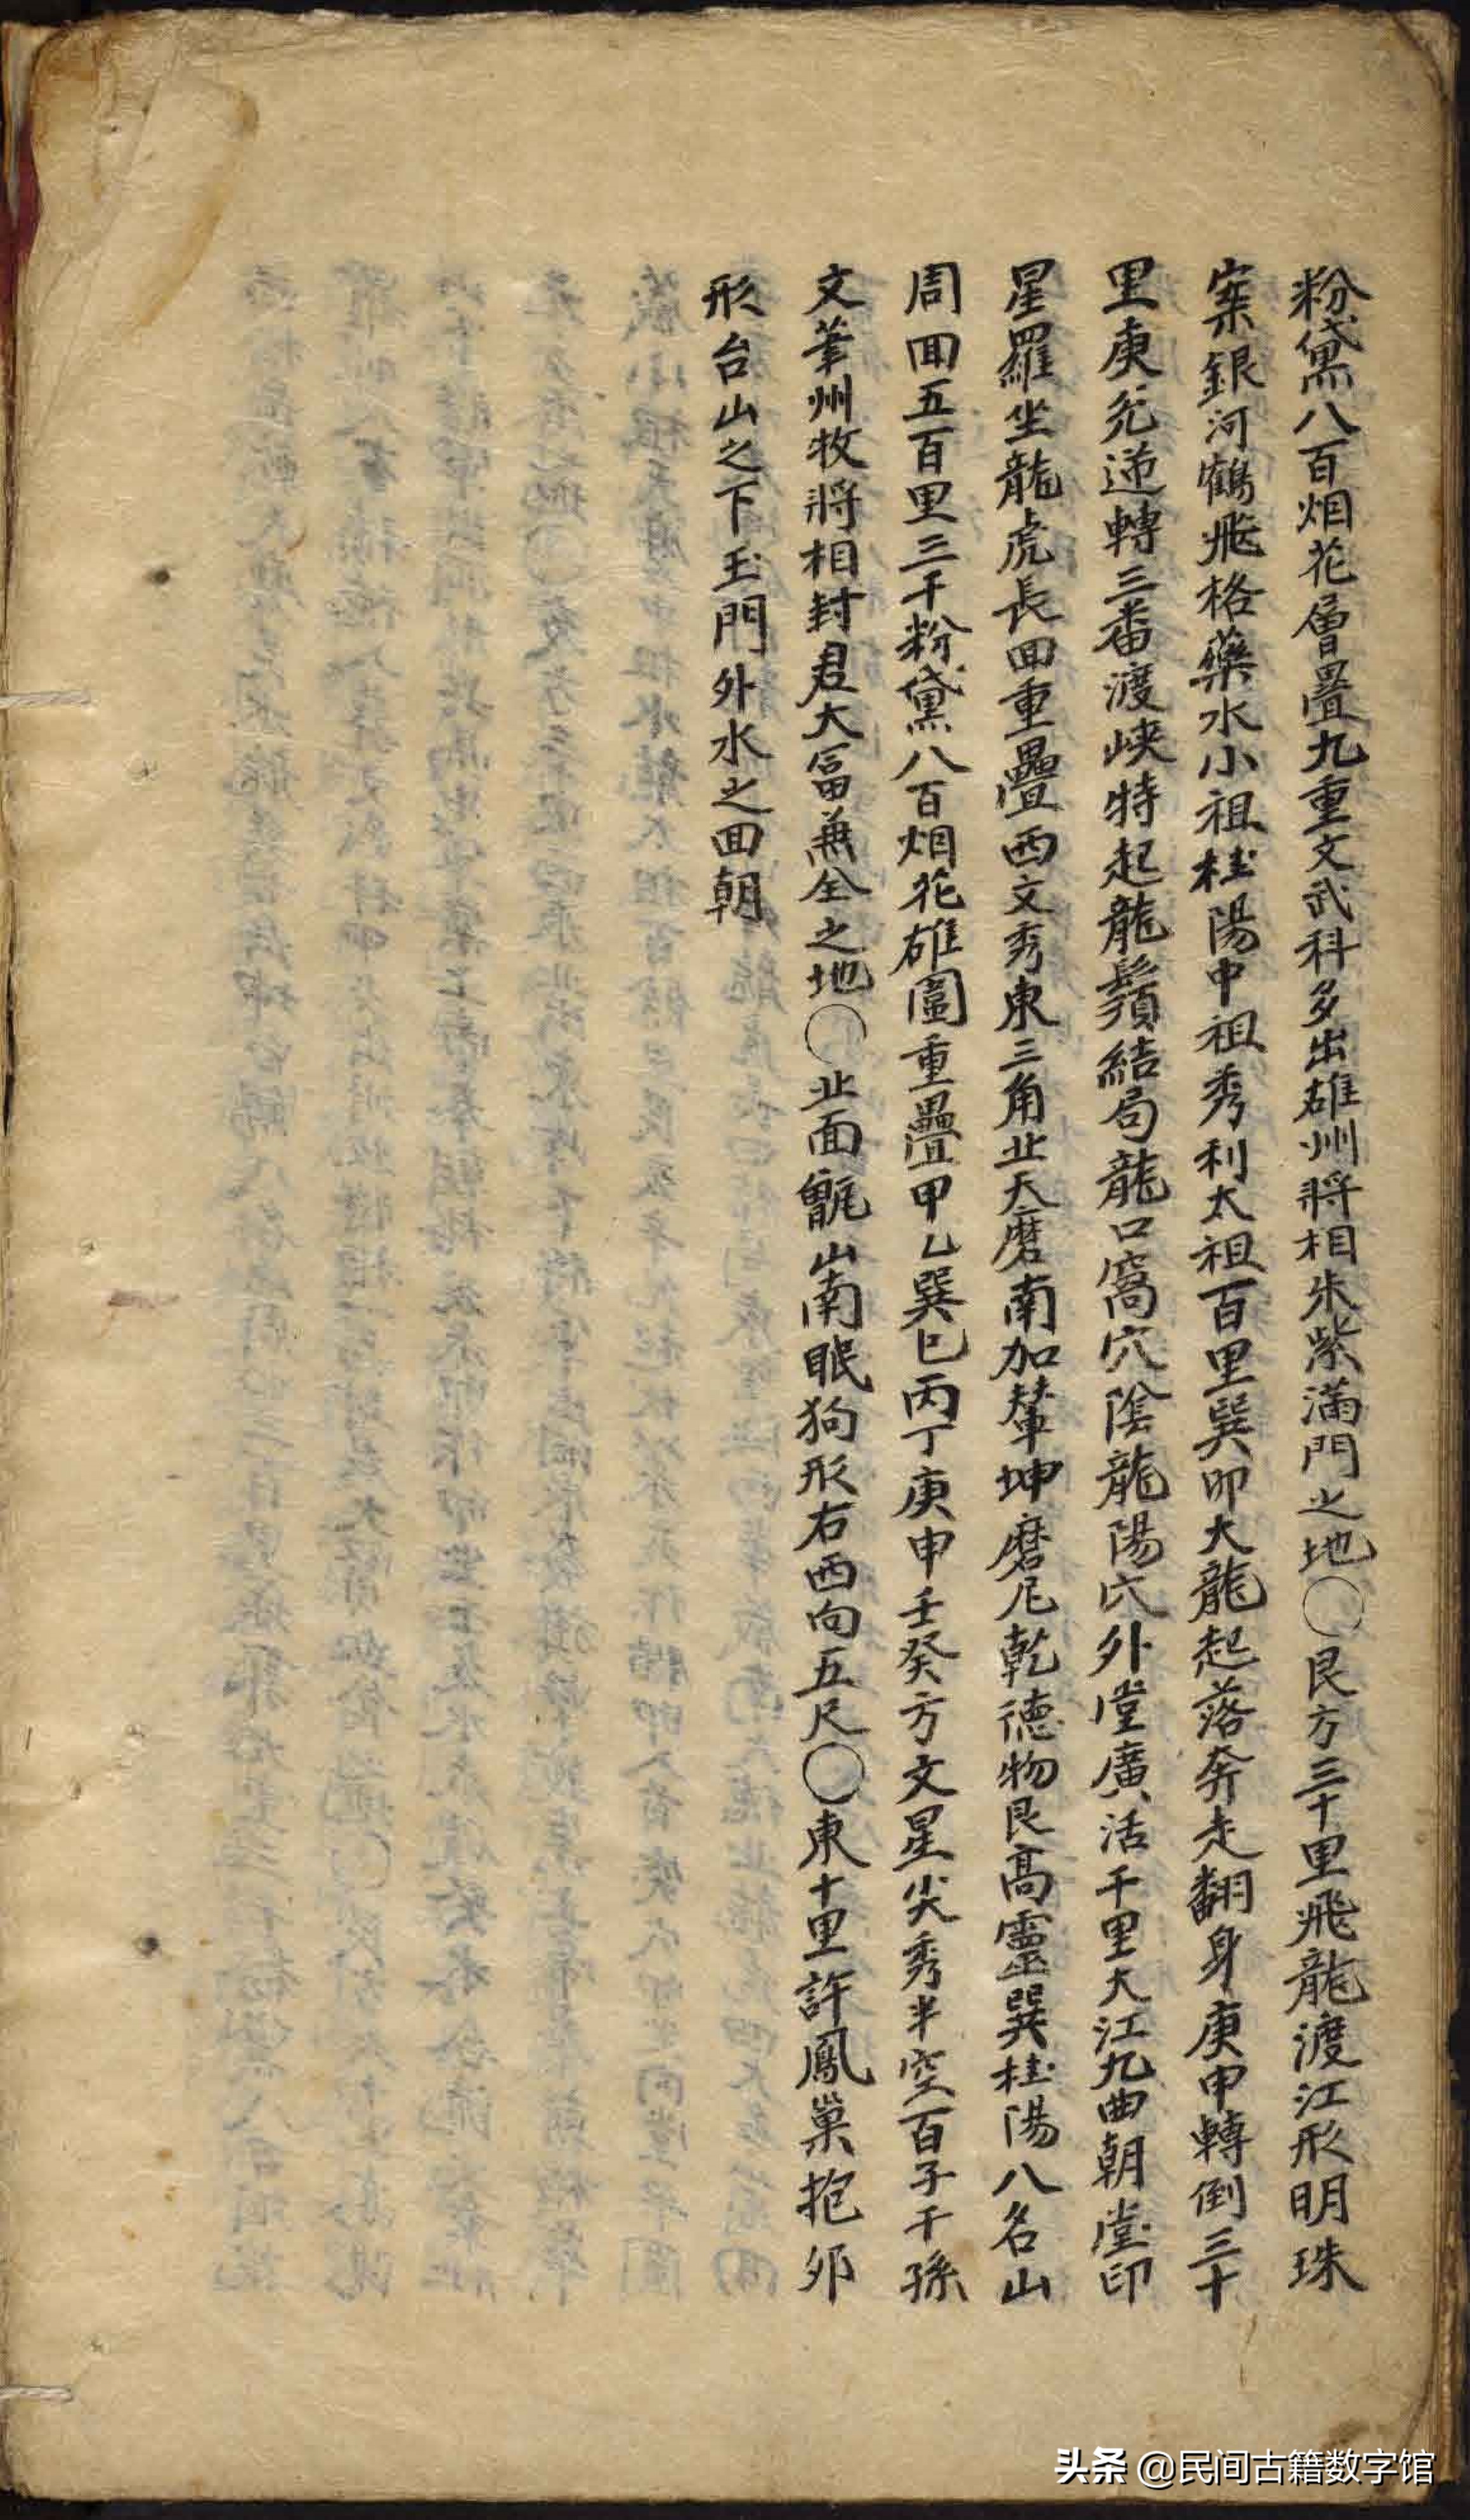 粉黛八百烟花層疊九重文武科多出雄州將相朱紫滿門之地○艮方三十里飛龍渡江形明珠
案銀河鶴飛格藥水小祖桂陽中祖秀利太祖百里巽卯大龍起落奔走翻身庚申轉倒三十
里庚兌逆轉三番渡峽特起龍鬚結局龍口窩穴陰龍陽穴外堂廣活千里大江九曲朝堂印
星羅坐龍虎長回重疊西文秀東三角北天磨南加輦坤磨尼乾德物艮高靈巽桂陽八名山
周回五百里三千粉黛八百烟花雄圖重疊甲乙巽巳丙丁庚申壬癸方文星尖秀半空百子千孫
文筆州牧將相封君大富兼全之地○北面甑山南眠狗形右西向五尺○東十里許鳳巢抱卵
形台山之下玉門外水之回朝
头条 @民间古籍数字馆